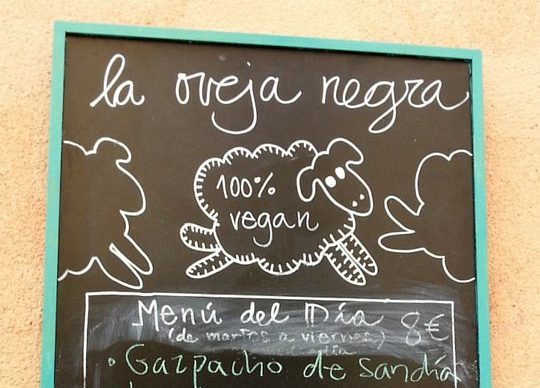 la oveja negra
100%
vegan
Menú del Día
(de martes a viernes) 8€
• Gazpacho de sandía